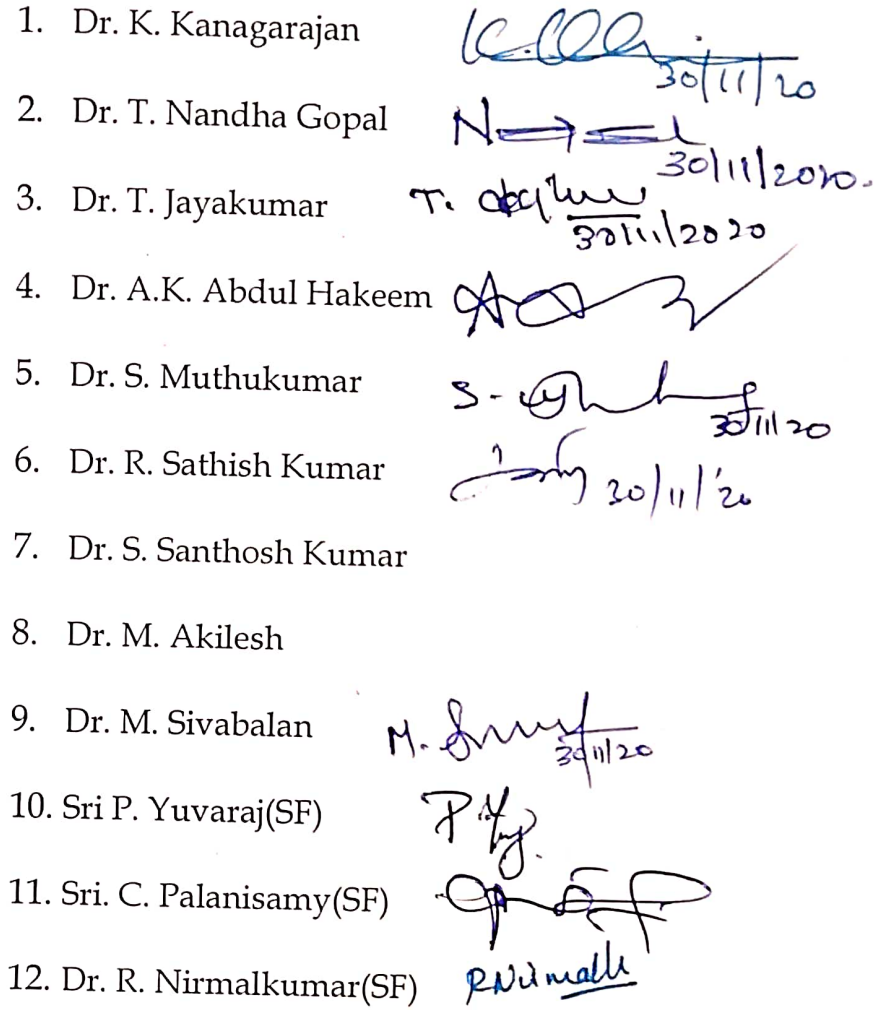 1. Dr. K. Kanagarajan
30/11/20
2. Dr. T. Nandha Gopal
30/11/2020.
3. Dr. T. Jayakumar T.
30/11/2020
4. Dr. A.K. Abdul Hakeem
5. Dr. S. Muthukumar S.
30/11/20
6. Dr. R. Sathish Kumar 30/11/'20
7. Dr. S. Santhosh Kumar
8. Dr. M. Akilesh
9. Dr. M. Sivabalan M.
30/11/20
10. Sri P. Yuvaraj(SF)
11. Sri. C. Palanisamy(SF)
12. Dr. R. Nirmalkumar(SF)